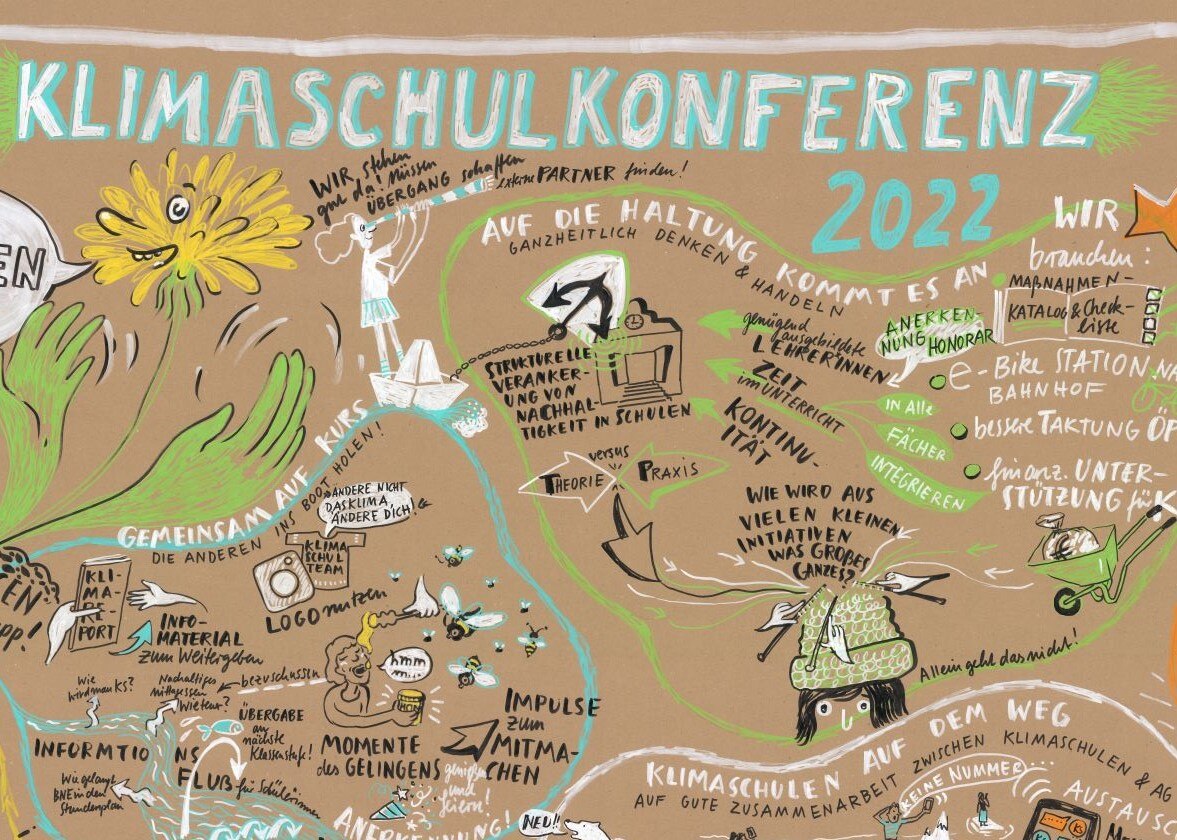 KLIMASCHULKONFERENZ
2022
EN
WIR stehen
gut da! Müssen
ÜBERGANG schaffen
externe PARTNER finden!
AUF DIE HALTUNG KOMMT ES AN
GANZHEITLICH DENKEN & HANDELN
STRUKTURELLE
VERANKER-
UNG VON
NACHHAL-
TIGKEIT IN SCHULEN
genügend
ausgebildete
LEHRER*INNEN
ZEIT
im UNTERRICHT
KONTINU-
ITÄT
ANERKEN-
NUNG HONORAR
IN Alle
FÄCHER
INTEGRIEREN
WIR
brauchen:
MAßNAHMEN-
KATALOG & Check-
liste
e-Bike STATION NA
BAHNHOF
bessere TAKTUNG ÖP
finanz. UNTER-
STÜTZUNG für K
THEORIE
versus
PRAXIS
WIE WIRD AUS
VIELEN KLEINEN
INITIATIVEN
WAS GROßES
GANZES?
Allein geht das nicht!
GEMEINSAM AUF KURS
DIE ANDEREN INS BOOT HOLEN!
ÄNDERE NICHT
DAS KLIMA,
ÄNDERE DICH!
KLIMA
SCHUL
TEAM
LOGO nutzen
KLI-
MA-
RE-
PORT
EN
pp!
INFO-
MATERIAL
zum Weitergeben
Nachhaltiges
mitgessen
Wie teur?
bezuschussen
hmm
ÜBERGABE
an
nächste
Klassenstufe!
INFORMTIO NS
FLUß für Schüler:innen
Wie gelangt
BNE in den
Stundenplan
MOMENTE
des GELINGENS
genießen
und
feiern!
IMPULSE
zum
MITMA-
CHEN
ANERKENNUNG!
NEU!!
KLIMASCHULEN AUF DEM WEG
AUF GUTE ZUSAMMENARBEIT ZWISCHEN KLIMASCHULEN & AG
KEINE NUMMER...
AUSTAUSC